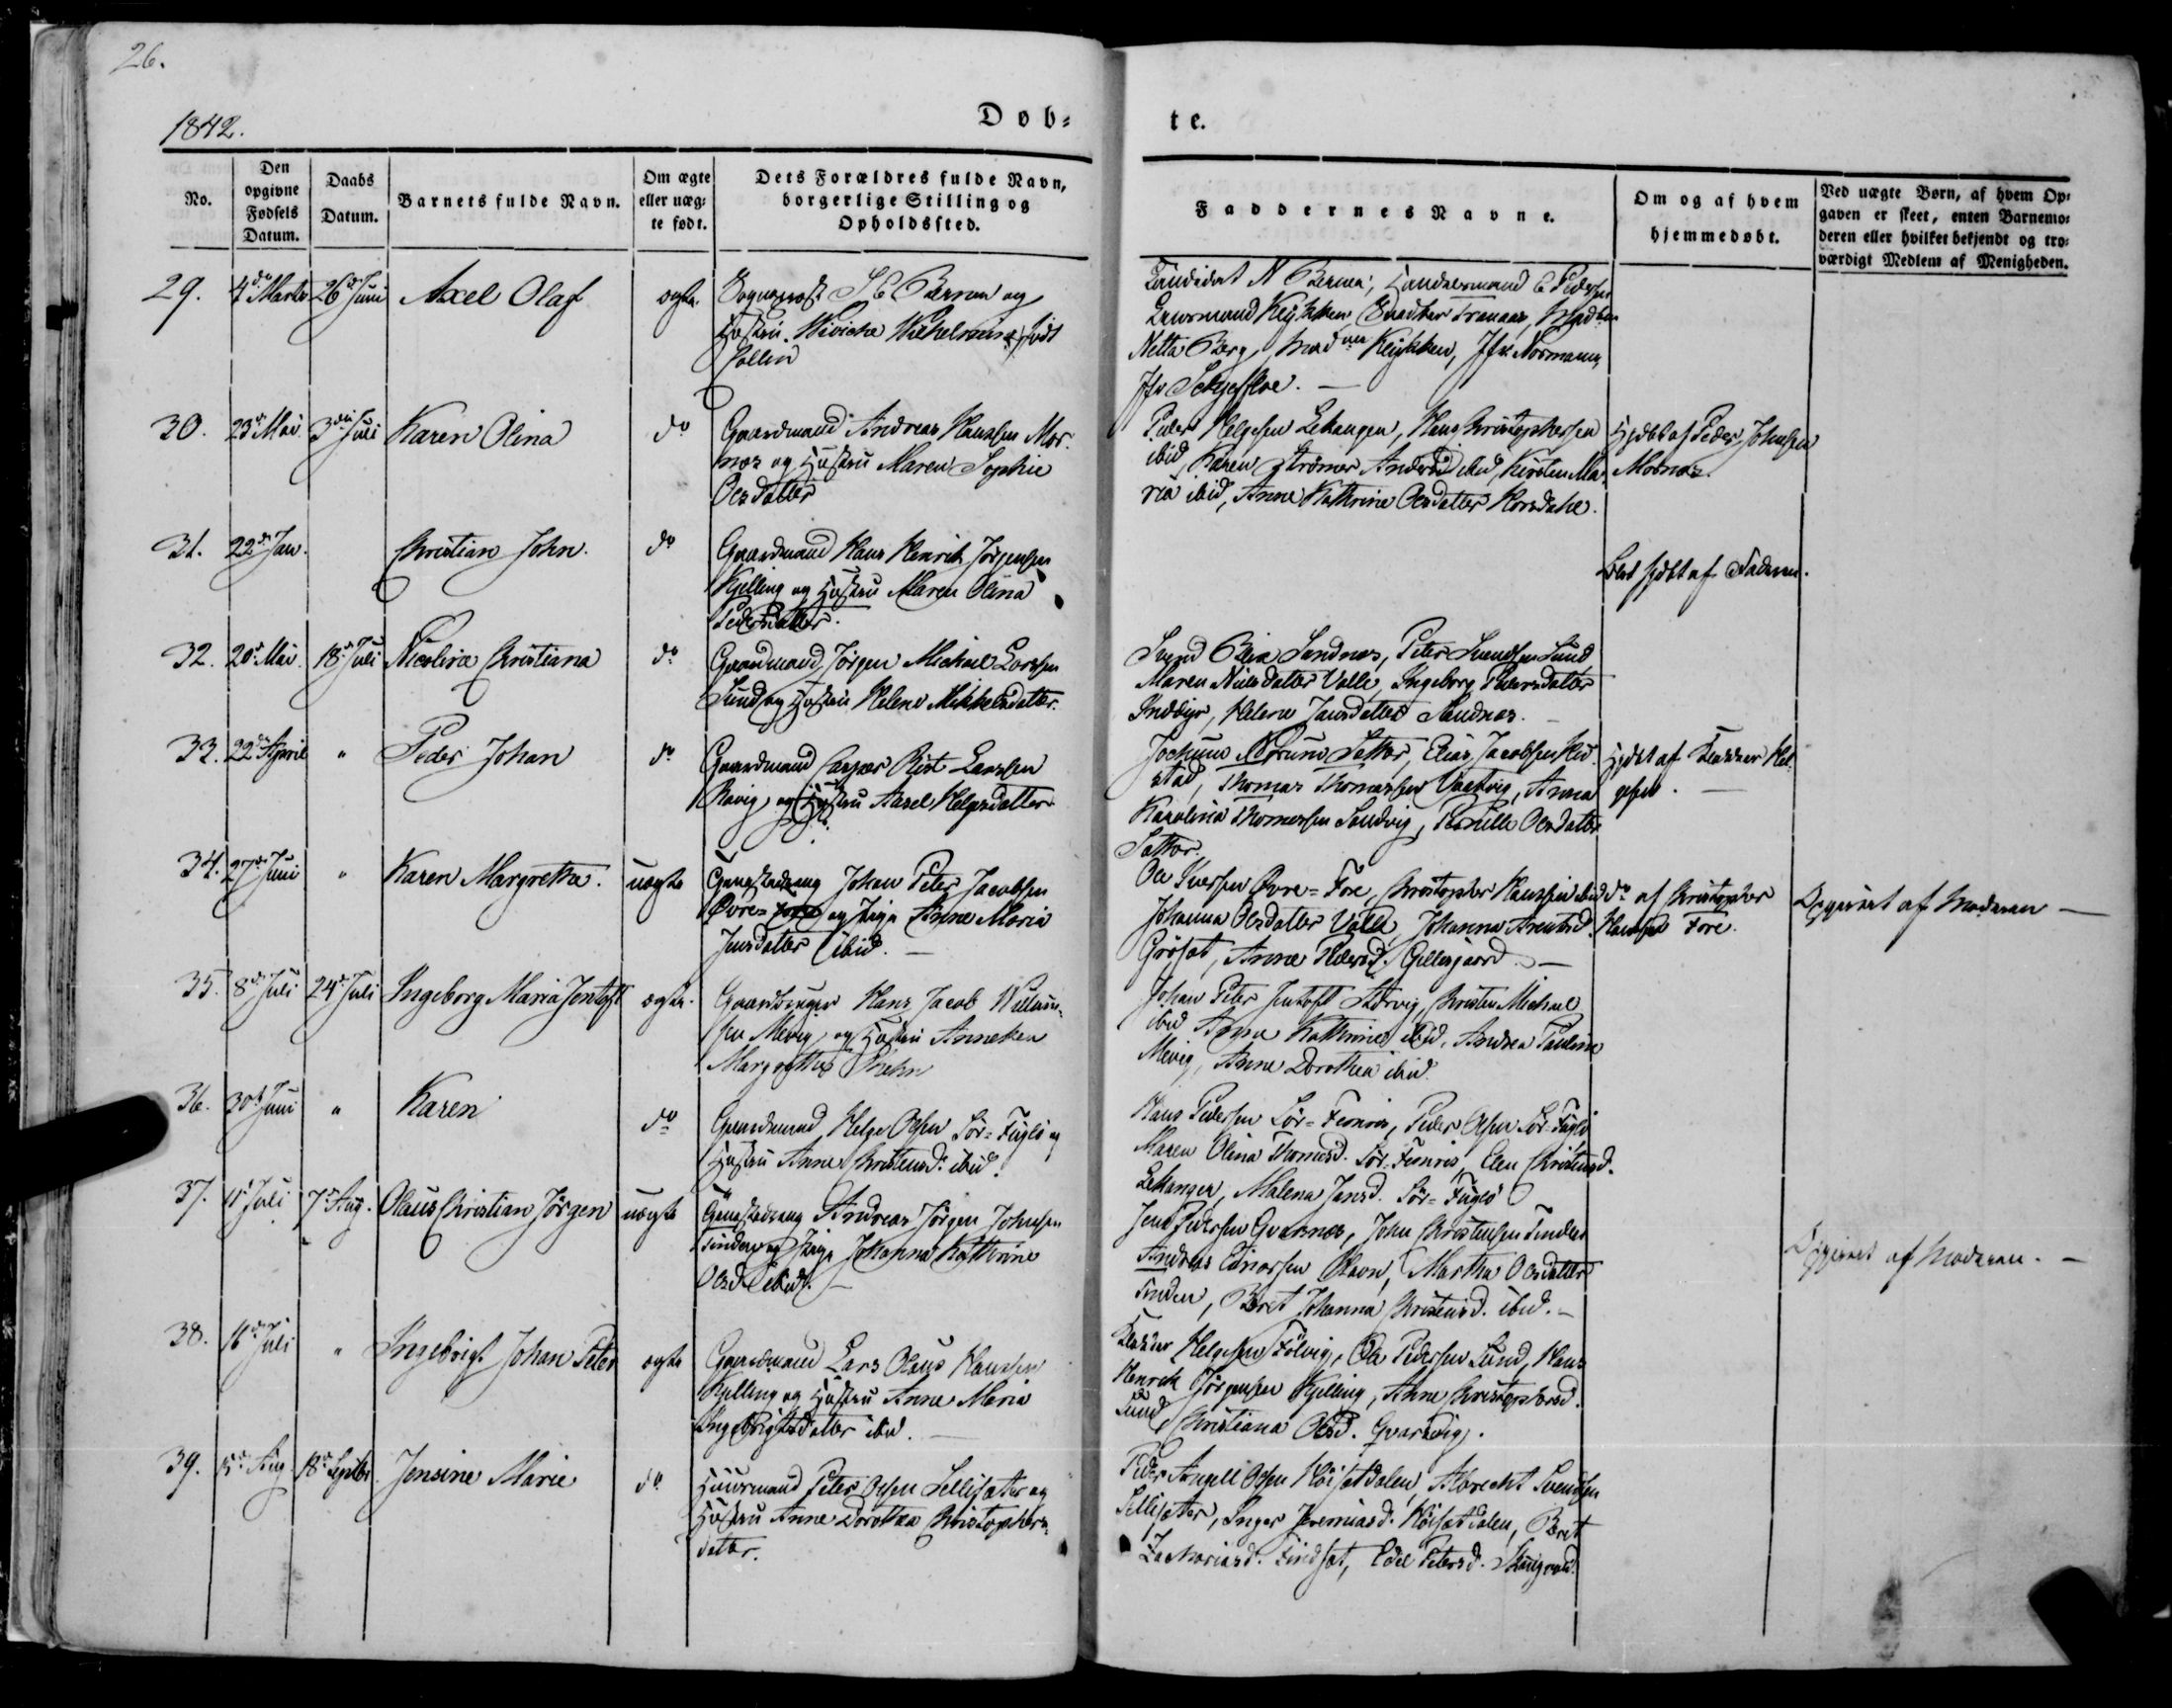 26.
1842.
Døb-
te.
No.
Den opgivne Fødsels Datum.
Daabs Datum.
Barnets fulde Navn.
Om ægte eller uæg-te født.
Dets Forældres fulde Navn, borgerlige Stilling og Opholdssted.
Faddernes Navne.
Om og af hvem hjemmedøbt.
Ved uægte Børn, af hvem Op-gaven er skeet, enten Barnemo-deren eller hvilket bekjendt og tro-værdigt Medlem af Menigheden.
29. 4de Marts 26de Juni Axel Olaf ægte Sogneprest Berner og
Hustru Wivicke Wilhelmine født
Candidat N Berner, Handelsmand C Pedersen
Netta Berg, Madme Kejkken, Jfr Normann,
30. 23de Mai 3die Juli Karen Olina do Gaardmand Andreas Hanssen Mor-
næs og Hustru Maren Sophie
Olsdatter
Peder Helgesen Lekangen, Hans Christophersen
ibid, Karen ibid, Kirsten Ma-
ria ibid, Anne Kathrine Olsdatter
Hjdbt af Peder Johnsen
Mornæs.
31. 22de Jan. Christian John. do Gaardmand Hans Henrik Jørgensen
Kjelling og Hustru Maren Olina
Pedersdatter.
hjdbt af Faderen.
32. 20de Mai 18de Juli Nicoline Christiana do Gaardmand Jørgen Michael Larssen
Sund og Hustru Helene Mikkelsdatter.
Svend Sandnæs, Peter Svendsen Sund
Maren Nielsdatter Valle, Ingeborg Pedersdatter
Inddyr, Helene Jensdatter Sandnæs.
33. 22de April " Peder Johan do Gaardmand Casper Rist Larssen
og Hustru Aasel Helgesdatter
Jochum Sætter, Elias Jacobsen
stad, Thomas Thomassen Anna
Karolina Thomassen Sandvig, Pernille Olsdatter
Sætter.
Hjdbt af Kladder Hel-
gesen.
34. 27de Juni " Karen Margretha. uægte Johan Peter Jacobsen
Øvre-Fore og Pige Anne Maria
Jensdatter ibid.
Ole Iversen Øvre-Fore, Christopher Hanssen ibid
Johanna Olsdatter Valle, Johanna Arentsd.
Grøset, Anne Gillesgaard.
do af Christopher
Hanssen Fore.
Opgivet af Moderen
35. 8de Juli 24de Juli Ingeborg Maria Jentoft ægte. Gaardbruger Hans Jacob Willum-
sen Mevig og Hustru Anneken
Margrethe Krehn
Johan Peter Jentoft Størvig, Christen Michael
ibid Anna Kathrine ibid, Andrea Pauline
Mevig, Anne Dorothea ibid.
36. 30te Juni " Karen do Gaardmand Helge Olsen Sør-Fuglø og
Hustru Anne Christensd. ibid.
Hans Pedersen Sør-Femris, Peder Olsen Sør-Fuglø
Maren Olina Thomasd. Sør-Femris, Elen Christensd.
Lekanger, Malena Jansd. Sør-Fuglø
37. 11te Juli 7de Aug. Olaus Christian Jørgen uægte Andreas Jørgen Johnsen
Finden og Pige Johanna Kathrine
Olsd ibid.
Jens Pedersen Qvarnæs, John Christensen Finden
Andreas Einarsen Martha Olsdatter
Finden, Berit Johanna Christensd. ibid.
Opgivet af Moderen.
38. 16de Juli " Ingebrigt Johan Peter ægte Gaardmand Lars Olaus Hanssen
Kjelling og Hustru Anne Maria
Ingebrigtsdatter ibid.
Kladder Helgesen Følvig, Ole Pedersen Sund, Hans
Henrik Jørgensen Kjelling, Anne Christophersd.
Sund, Christiana Olsd.
39. 15de Aug. 18de Septbr. Jensine Marie do Huusmand Peter Olsen Sellisæter og
Hustru Anne Dorothea Christophers-
datter.
Peder Angell Olsen Høisætdalen, Albrecht Svendsen
Sellisæter, Inger Jeremiasd. Høisætdalen, Berit
Zachariasd. Findset, Edel Petersd.